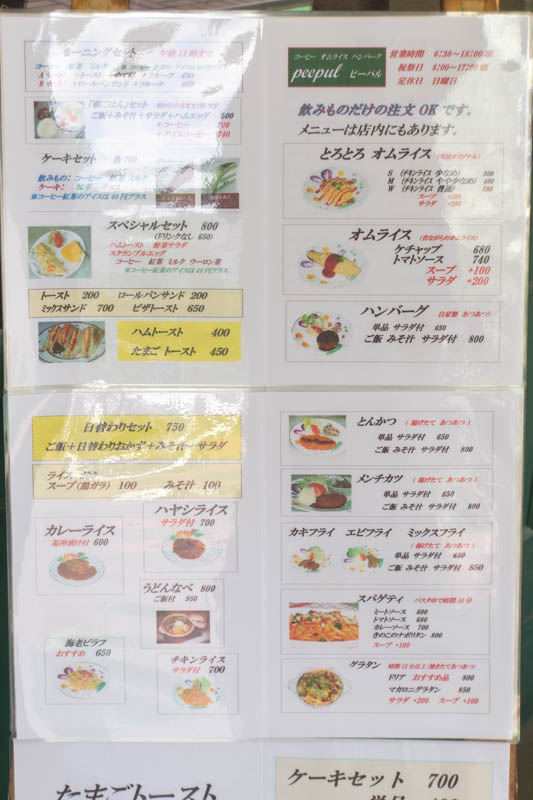 モーニングセット 午前11時まで
コーヒー 紅茶 ミルク
Aセット トースト
Bセット ロールパンサンド
朝ごはん セット
ご飯＋みそ汁＋サラダ＋ハムエッグ 500
＋コーヒー 700
＋アイスコーヒー 740
ケーキセット 各700
飲みもの: コーヒー 紅茶 ミルク
ケーキ:
※コーヒー紅茶のアイスは40円プラス
スペシャルセット 800
(ドリンクなし 650)
ハムトースト 野菜サラダ
スクランブルエッグ
コーヒー 紅茶 ミルク ウーロン茶
※コーヒー紅茶のアイスは40円プラス
トースト 200 ロールパンサンド 200
ミックスサンド 700 ピザトースト 650
ハムトースト 400
たまごトースト 450
コーヒー オムライス ハンバーグ
peepul ピーパル
営業時間 6:30~18:00頃
祝祭日 8:00~17:00頃
定休日 日曜日
飲みものだけの注文 OK です。
メニューは店内にもあります。
とろとろ オムライス (当店オリジナル)
S (チキンライス 少なめ)
M (チキンライス やや少なめ)
W (チキンライス 普通)
スープ +100
サラダ +200
オムライス (昔ながらのオムライス)
ケチャップ 680
トマトソース 740
スープ +100
サラダ +200
ハンバーグ (自家製 あつあつ)
単品 サラダ付 650
ご飯 みそ汁 サラダ付 800
日替わりセット 750
ご飯＋日替わりおかず＋みそ汁＋サラダ
ライス 200
スープ(鶏ガラ) 100 みそ汁 100
カレーライス
福神漬け付 600
ハヤシライス
サラダ付 700
うどんなべ 800
ご飯付 950
海老ピラフ
おすすめ 650
チキンライス
サラダ付 700
とんかつ (揚げたて あつあつ)
単品 サラダ付 650
ご飯 みそ汁 サラダ付 800
メンチカツ (揚げたて あつあつ)
単品 サラダ付 650
ご飯 みそ汁 サラダ付 800
カキフライ エビフライ ミックスフライ
(揚げたて あつあつ)
単品 サラダ付 650
ご飯 みそ汁 サラダ付 850
スパゲティ パスタゆで時間10分
ミートソース 600
トマトソース 680
カレーソース 700
きのこのナポリタン 800
スープ +100
グラタン (時間15分以上(焼きたてあつあつ)
ドリア おすすめ品 800
マカロニグラタン 850
サラダ +200 スープ +100
たまごトースト
ケーキセット 700